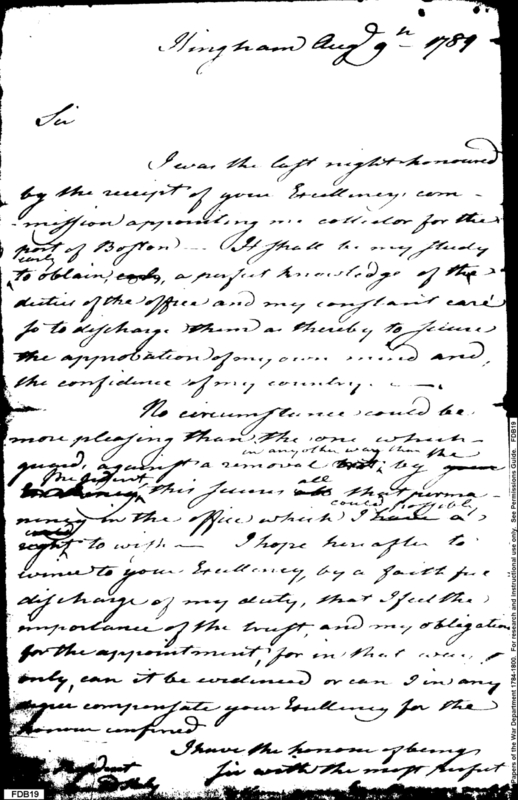 Hingham Augt 9th 1789
Sir
I was the last night honoured
by the receipt of your Excellency's com-
-mission appointing me collector for the
port of Boston — It shall be my study
early
to obtain, a perfect knowledge of the
duties of the office and my constant care
so to discharge them as thereby to secure
the approbation of my own mind and,
the confidence of my country. —
No circumstance could be
more pleasing than the one which
in any other way than
guard, against a removal but, by the
President
this secures all that perma-
could possibly
nency in the office which I have a
right to wish — I hope hereafter to
evince to your Excellency, by a faithful
discharge of my duty, that I feel the
importance of the trust, and my obligation
for the appointment, for in that way
only, can it be evidenced or can I in any
degree compensate your Excellency for the
honour confired
I have the honour of being
Sir with the most perfect
President
FDB19
Papers of the War Department 1784-1800. For research and instructional use only. See Permissions Guide. FDB19